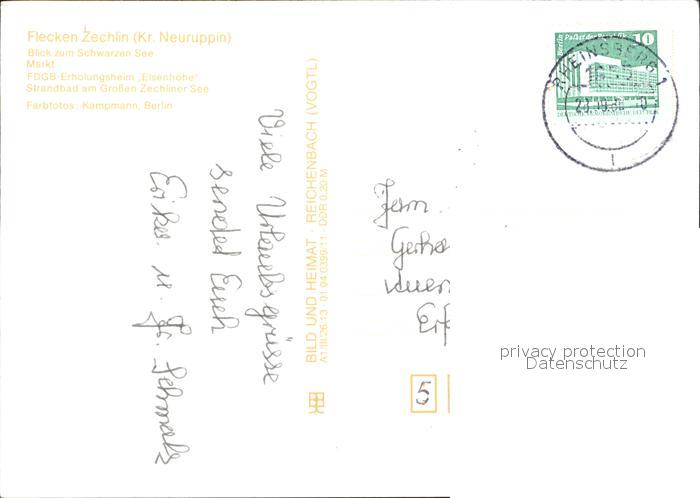 Flecken Zechlin (Kr. Neuruppin)
Blick zum Schwarzen See
Markt
FDGB-Erholungsheim „Eisenhöhe“
Strandbad am Großen Zechliner See
Farbfotos: Kampmann, Berlin
Viele Urlaubsgrüsse
sendet Euch
Erika u. Fr. Schmalz
BILD UND HEIMAT · REICHENBACH (VOGTL)
A1/III/26/13 · 01 04 0399/11 · DDR 0,20 M
Berlin, Palast der Republik 10
DEUTSCHE DEMOKRATISCHE REPUBLIK
RHEINSBERG 1
Fam.
Gerha
Erf
5
privacy protection
Datenschutz